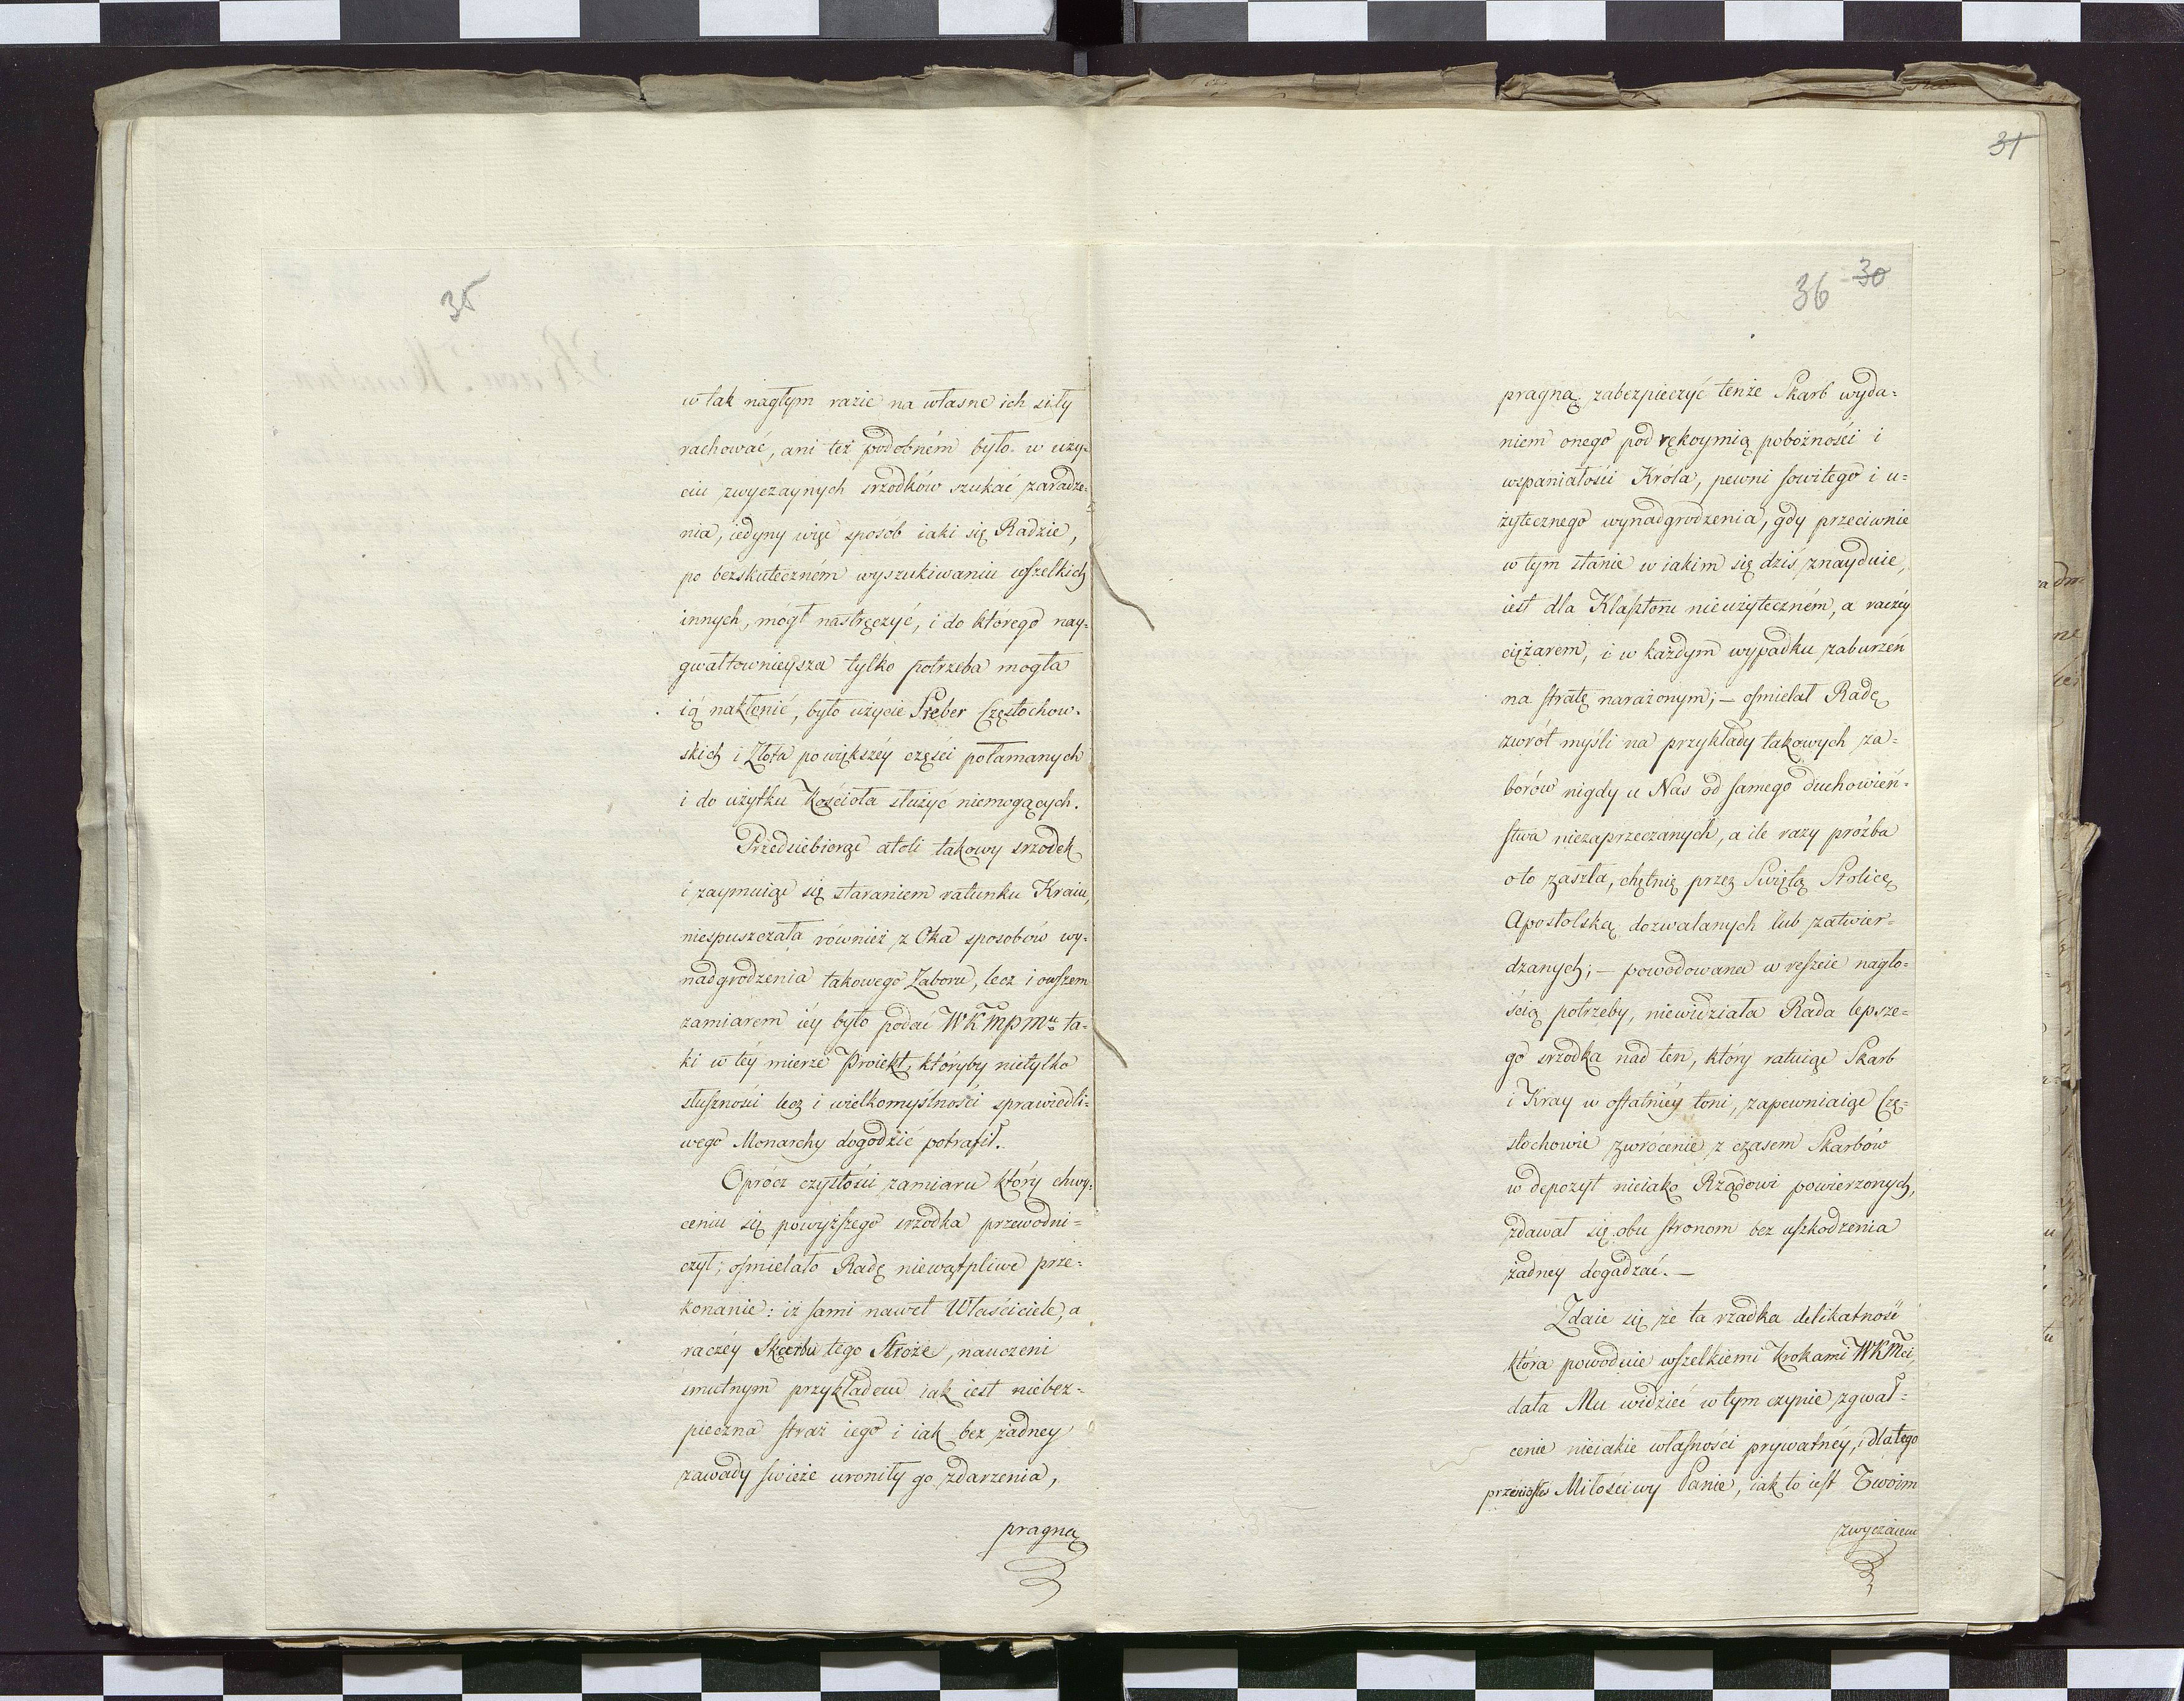 35
w tak nagłym razie na własne ich siły
rachować, ani też podobném było w uży-
ciu zwyczaynych srzodków szukać zaradze-
nia, iedyny więc sposób iaki się Radzie,
po bezskuteczném wyszukiwaniu wszelkich
innych, mógł nastręczyć, i do którego nay-
gwałtownieysza tylko potrzeba mogła
ią nakłonić, było użycie Sreber Częstochow-
skich i Złota powiększéy części połamanych
i do użytku Kościoła służyć niemogących.
Przedsiebiorąc atoli takowy srzodek
i zaymuiąc się staraniem ratunku Kraiu,
niespuszczała również z Oka sposobów wy-
nadgrodzenia takowego Zaboru, lecz i owszem
zamiarem iéy było podać WKMPMu ta-
ki w téy mierze Proiekt, któryby nietylko
słuszności lecz i wielkomyślności sprawiedli-
wego Monarchy dogodzić potrafił.
Oprócz czystości zamiaru który chwy-
ceniu się powyższego srzodka przewodni-
czył; ośmielało Radę niewątpliwe prze-
konanie: iż sami nawet Właściciele, a
raczéy Skarbu tego Stróże, nauczeni
smutnym przykładem iak iest niebez-
pieczna straż iego i iak bez żadney
zawady swieże uroniły go zdarzenia,
pragną
31
36 30
pragną zabezpieczyć tenże Skarb wyda-
niem onego pod rękoymią pobożności i
wspaniałości Króla, pewni sowitego i u-
żytecznego wynadgrodzenia, gdy przeciwnie
w tym stanie w iakim się dziś znayduie,
iest dla Klasztoru nieużyteczném, a raczéy
ciężarem, i w każdym wypadku zaburzeń
na stratę narażonym; — ośmielał Radę
zwrót myśli na przykłady takowych za-
borów nigdy u Nas od samego duchowień-
stwa niezaprzeczanych, a ile razy prożba
o to zaszła, chętnie przez Swiętą Stolicę
Apostolską dozwalanych lub zatwier-
dzanych; — powodowana w reszcie nagło-
ścią potrzeby, niewidziała Rada lepsze-
go srzodka nad ten, który ratuiąc Skarb
i Kray w ostatniéy toni, zapewniaiąc Czę-
stochowie zwrócenie z czasem Skarbów
w depozyt nieiako Rządowi powierzonych,
zdawał się obu stronom bez uszkodzenia
żadney dogadzać. —
Zdaie się że ta rzadka delikatność
która powoduie wszelkiemi Krokami WKMci,
dała Mu widzieć w tym czynie zgwał-
cenie nieiakie własności prywatnéy, i dlatego
przeniosłeś Miłościwy Panie, iak to iest Twoim
zwyczaiem